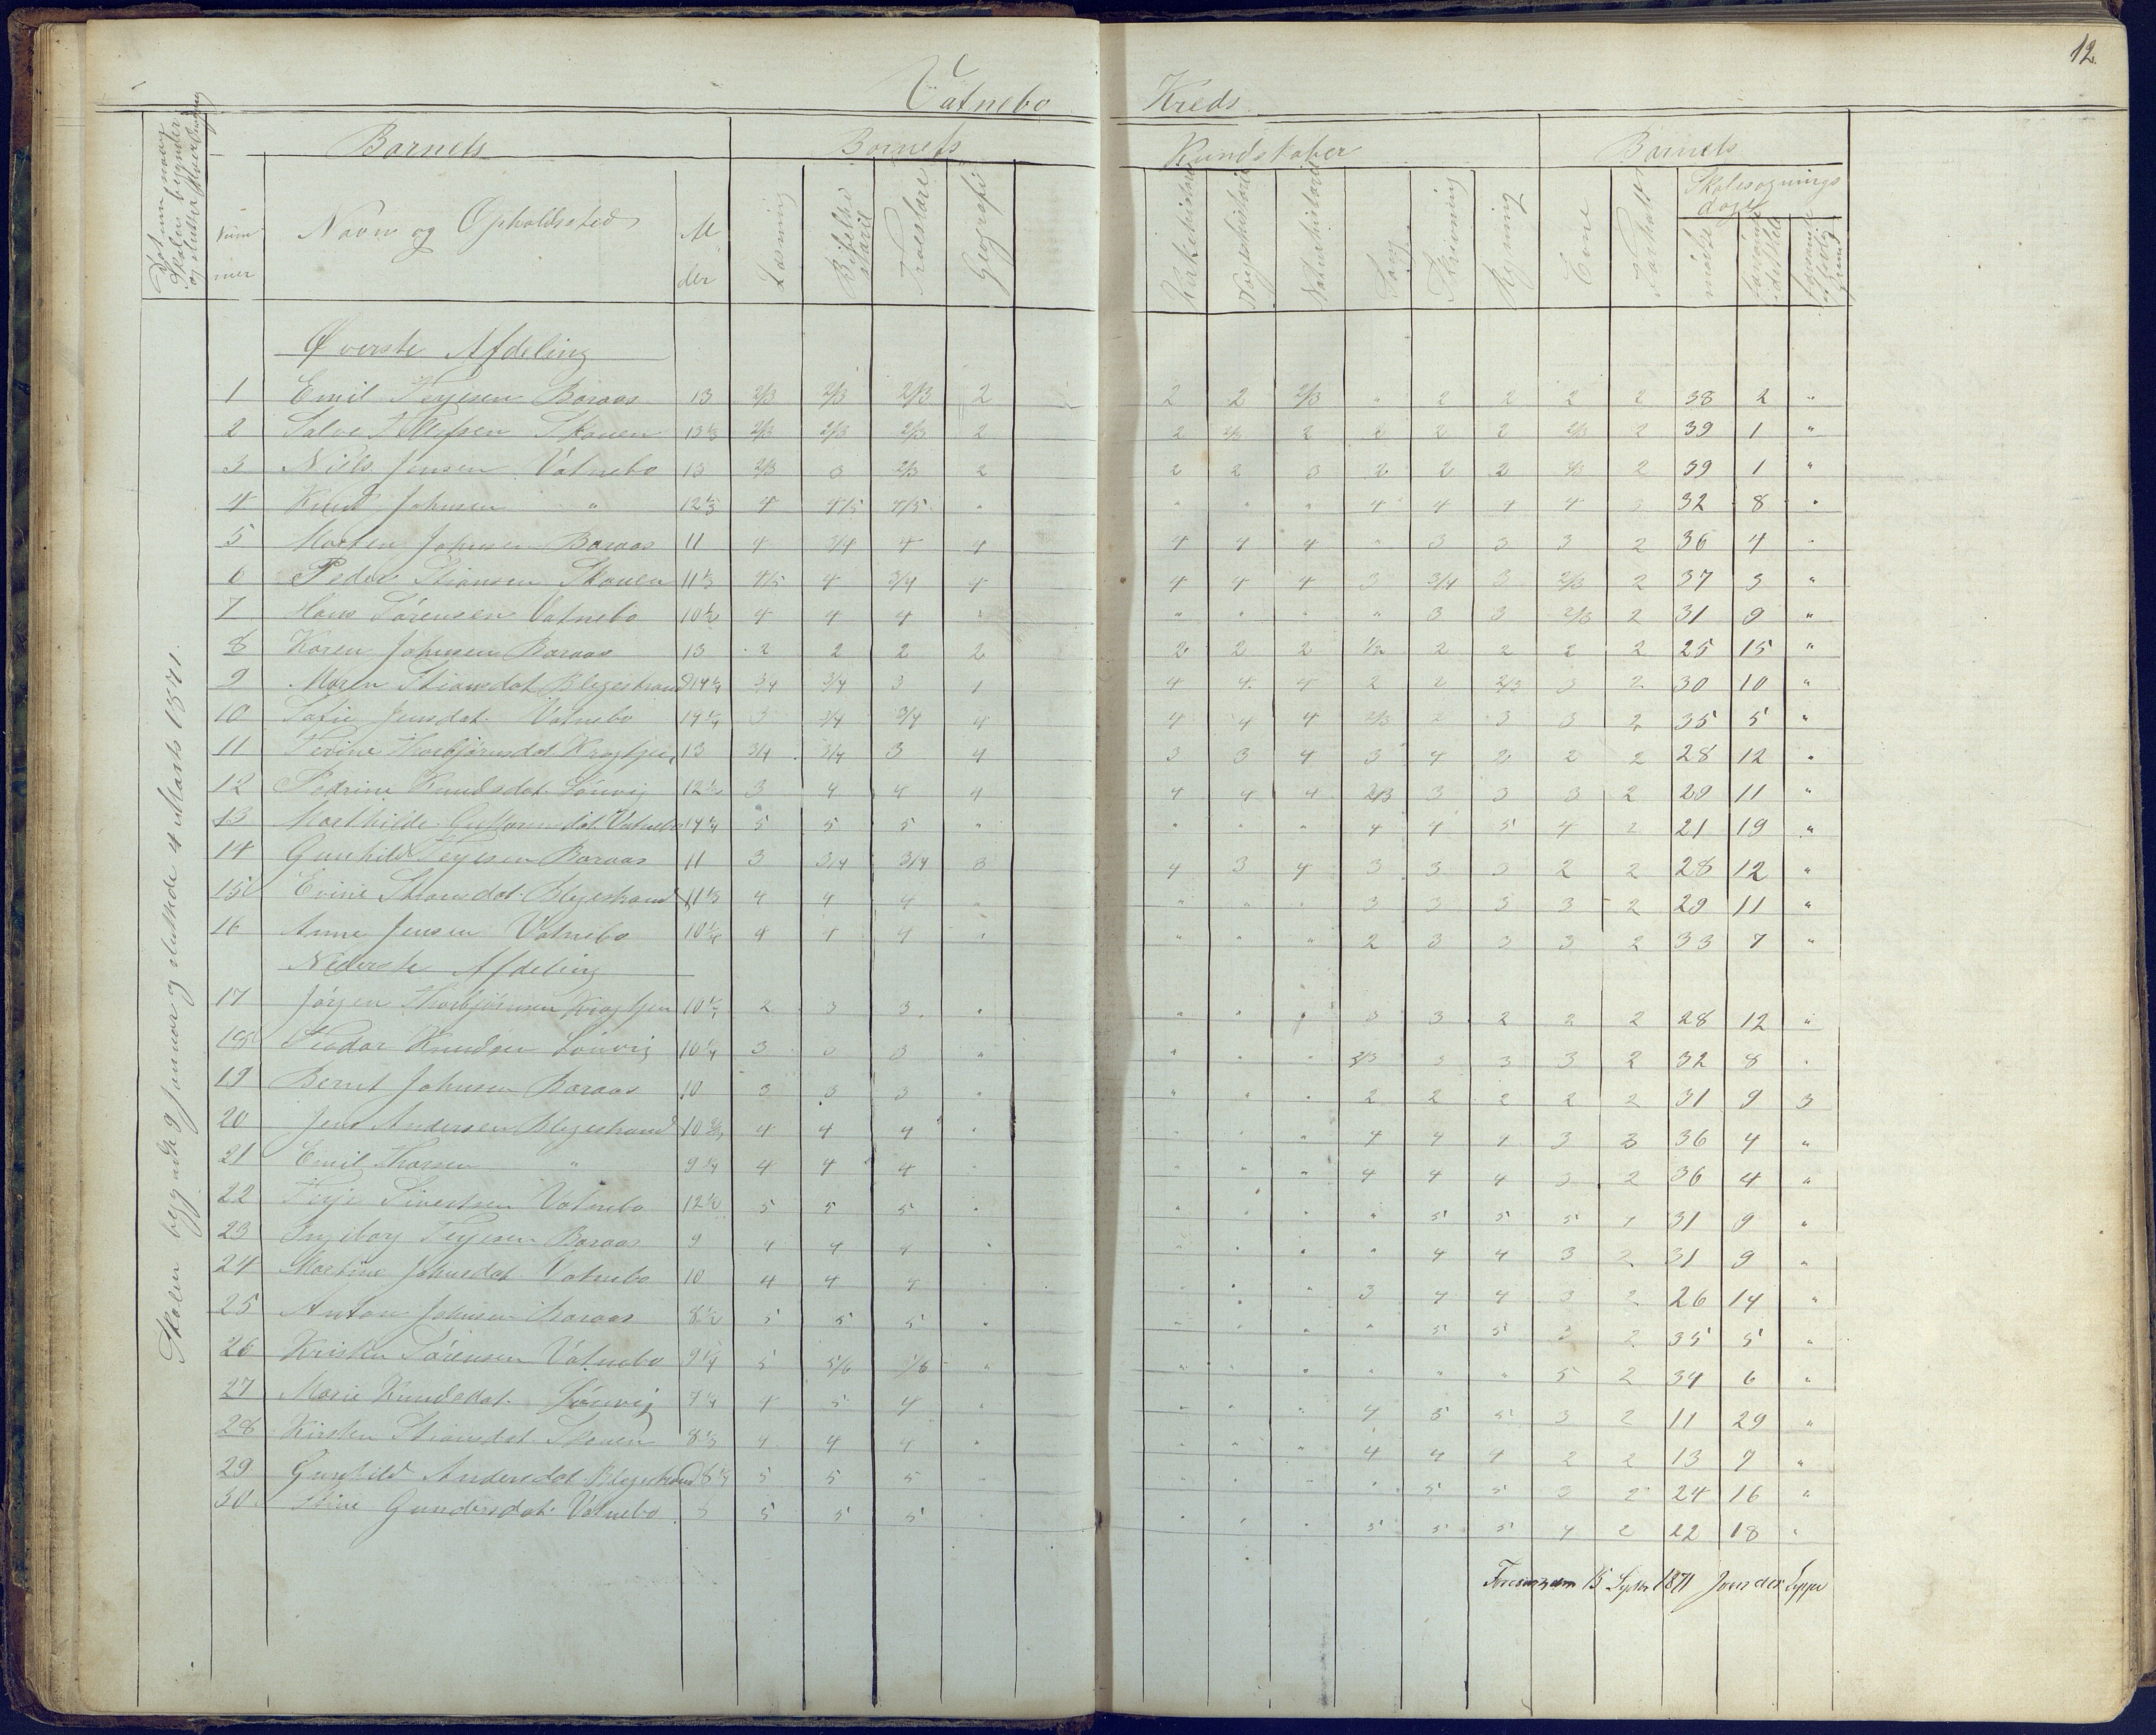 12.
Vatnebo Kreds
Barnets Barnets Kundskaber Barnets
Datum naar Skolen begynder og slutter hver Omgang
Num-mer Navn og Opholdssted Al-der Læsning Bibelhistorie Troeslære Geografi Kirkehistorie Norgeshistorie Naturhistorie Sang Skrivning Regning Evne Forhold Skolesøgnings dage mødte forsømte
Skolen begyndte 9 Januar og sluttede 4 Marts 1871.
Øverste Afdeling
1 Emil Terjesen Baraas 13 2/3 2/3 2/3 2 2 2 2/3 " 2 2 2 2 38 2 "
2 Salve Skouen 13 1/3 2/3 2/3 2/3 2 2 2/3 2 2 2 2 2/3 2 39 1 "
3 Niels Jensen Vatnebo 13 2/3 3 2/3 2 2 2 3 2 2 2 2/3 2 39 1 "
4 Knud Johnsen " 12 1/3 4 4/5 4/5 " " " " 4 4 4 4 3 32 8 "
5 Morten Johnsen Baraas 11 4 3/4 4 4 4 4 4 " 3 3 3 2 36 4 "
6 Peder Stiansen Skouen 11 1/3 4/5 4 3/4 4 4 4 4 3 3/4 3 2/3 2 37 3 "
7 Hans Sørensen Vatnebo 10 1/2 4 4 4 " " " " " 3 3 2/3 2 31 9 "
8 Karen Johnsen Baraas 13 2 2 2 2 2 2 2 1/2 2 2 2 2 25 15 "
9 Maren Stiansdat Blegestrand 14 1/4 3/4 3/4 3 4 4 4 2 2 2/3 3 2 30 10 "
10 Sofie Jensdat. Vatnebo 14 1/4 3 3/4 3/4 4 4 4 4 2/3 2 3 3 2 35 5 "
11 Terine Thorbjørnsdat 13 3/4 3/4 3 4 3 3 4 3 4 2 2 2 28 12 "
12 Pedrine Knudsdat. Lønvig 12 1/2 3 4 4 4 4 4 4 2/3 3 3 3 2 29 11 "
13 Mathilde Vatnebo 14 1/4 5 5 5 " " " " 4 4 5 4 2 21 19 "
14 Gunhild Terjesen Baraas 11 3 3/4 3/4 3 4 3 4 3 3 3 2 2 28 12 "
15 Evine Stiansdat. Blegestrand 11 1/3 4 4 4 " " " " 3 3 3 3 2 29 11 "
16 Anne Jensen Vatnebo 10 1/4 4 4 4 " " " " 2 3 3 3 2 33 7 "
Nederste Afdeling
17 Jørgen Thorbjørnsen 10 1/4 2 3 3 " " " " 3 3 2 2 2 28 12 "
18 Teodor Knudsen Lønvig 10 1/4 3 3 3 " " " " 2/3 3 3 3 2 32 8 "
19 Bernt Johnsen Baraas 10 3 3 3 " " " " 2 2 2 2 2 31 9 3
20 Jens Andersen Blegestrand 10 4 4 4 " " " " 4 4 4 3 3 36 4 "
21 Emil " 9 1/4 4 4 4 " " " " 4 4 4 3 2 36 4 "
22 Terje Sivertsen Vatnebo 12 1/2 5 5 5 " " " " " 5 5 5 31 9 "
23 Ingeborg Terjesen Baraas 9 4 4 4 " " " " " 4 4 3 2 31 9 "
24 Martine Johnsdat. Vatnebo 10 4 4 4 " " " " 3 4 4 3 2 26 14 "
25 Anton Johnsen Baraas 8 1/2 5 5 5 " " " " " 5 5 3 2 35 5 "
26 Kristen Sørensen Vatnebo 9 1/4 5 5/6 5/6 " " " " " " " 5 2 34 6 "
27 Marie Knudsdat. Lønvig 4 5 4 " " " " 4 5 5 3 2 11 29 "
28 Kirsten Stiansdat. Skouen 8 1/3 4 4 4 " " " " 4 4 4 2 2 13 "
29 Gunhild Andersdat. Blegestrand 8 1/4 5 5 5 " " " " " 5 5 3 2 24 16 "
30 Gundersdat. Vatnebo 5 5 5 " " " " 5 5 5 4 2 22 18 "
15 1871